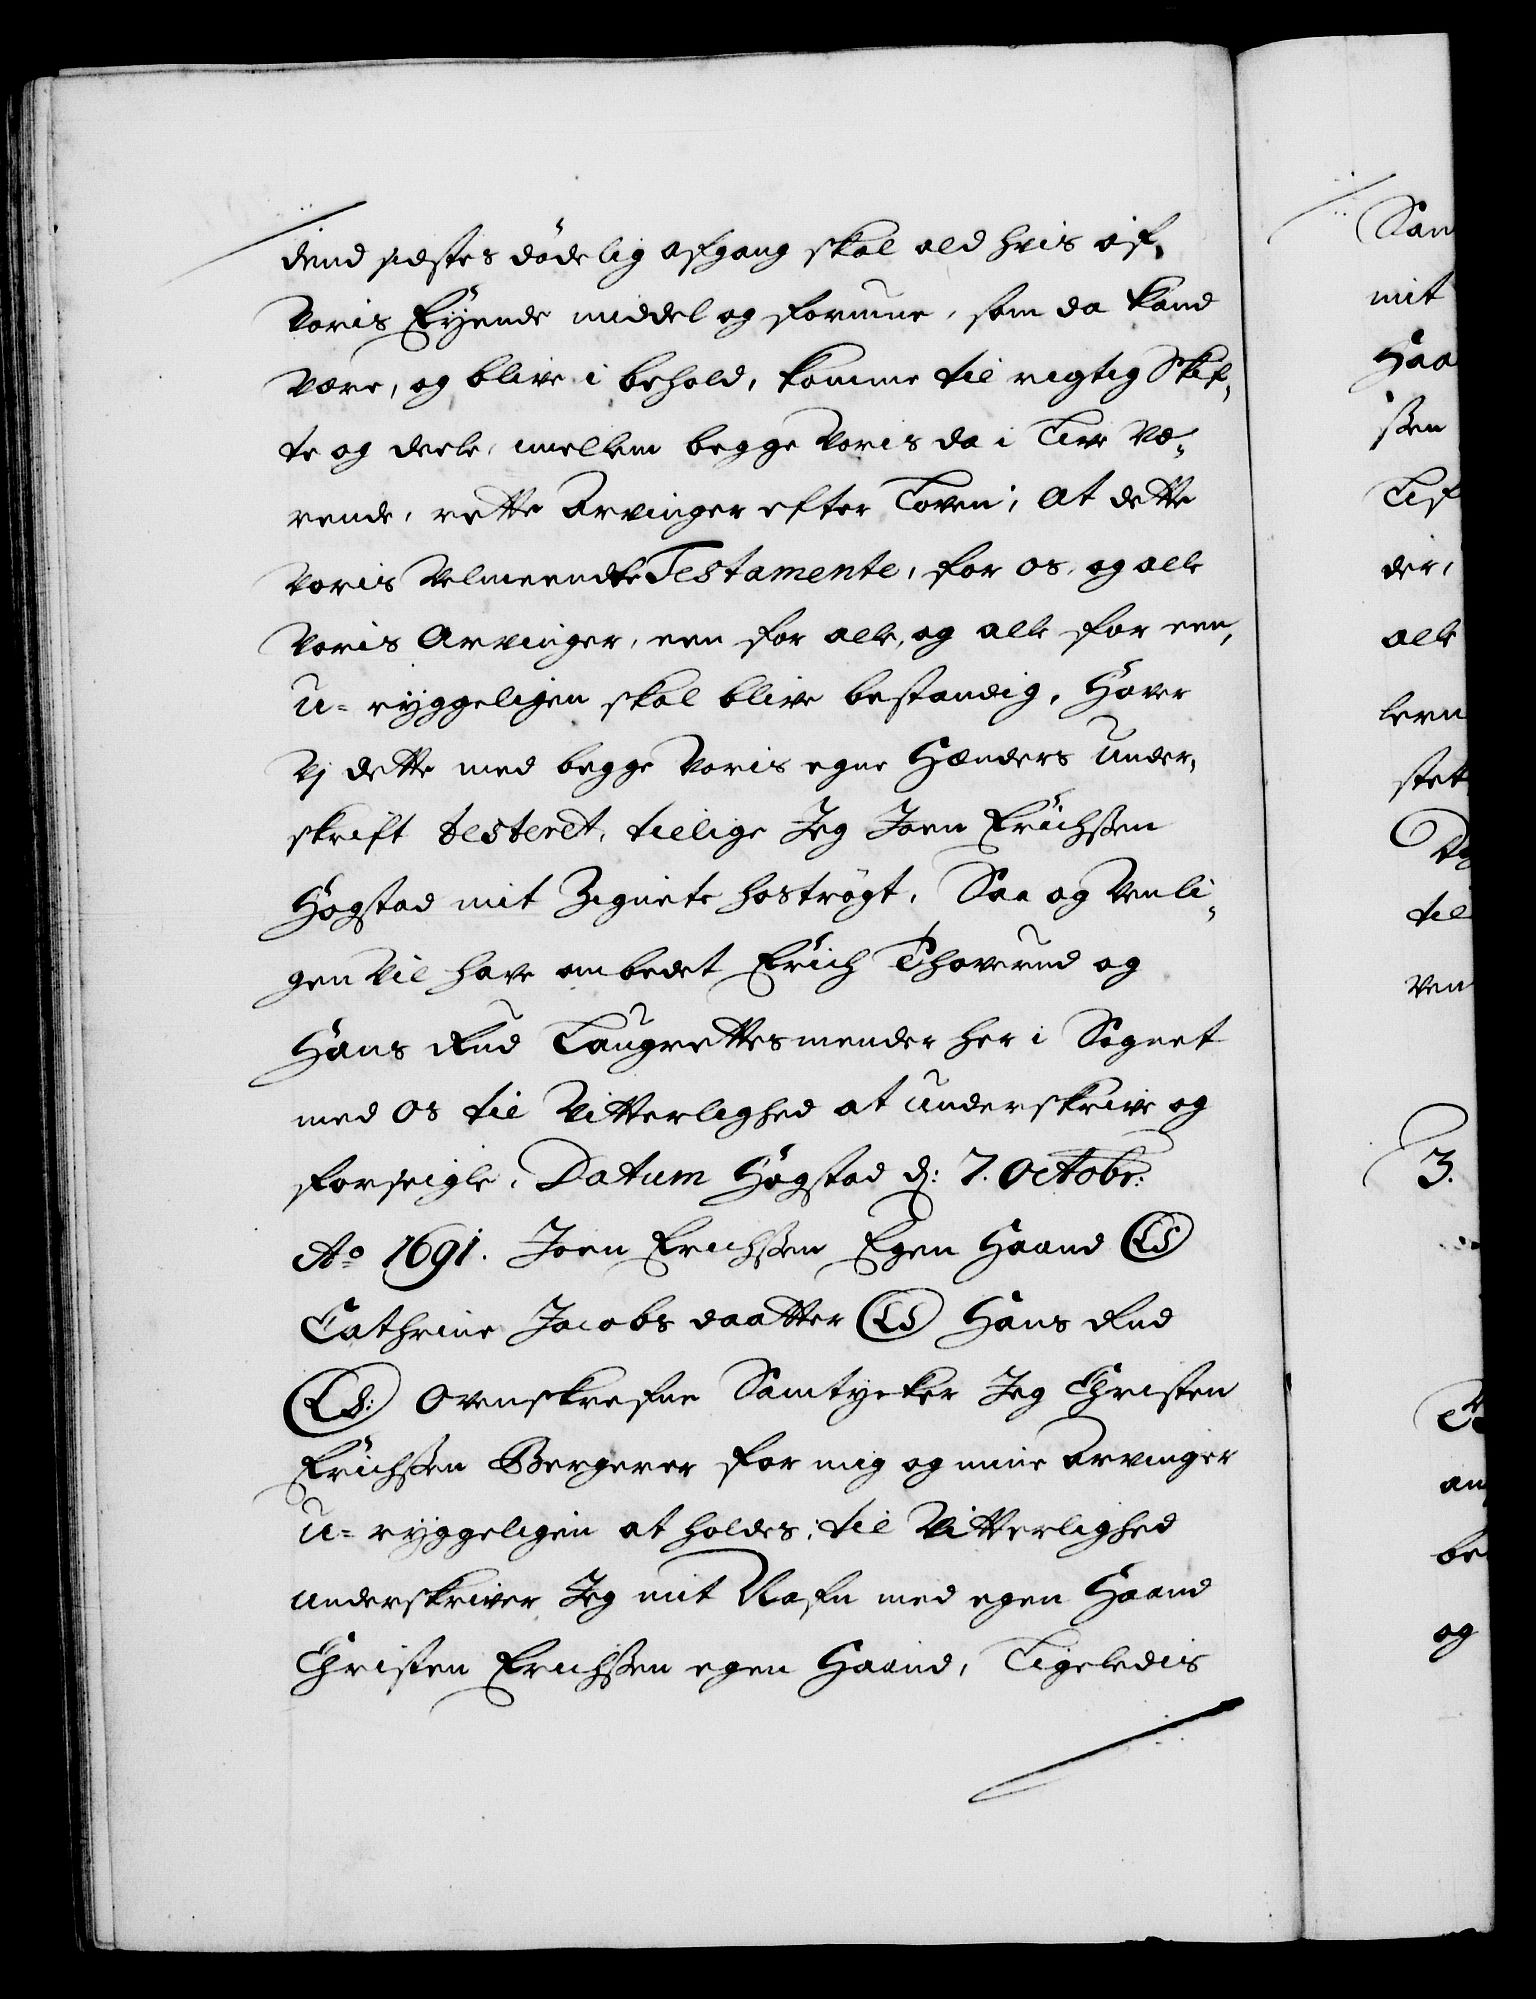 dend sidstes dödelig afgang skal ald hvis af
Voris Eÿende middel og formue, som da kand
være, og blive i behold, komme til rigtig Skif„
te og deele, imellem begge Voris da i Live Væ„
rende, rette Arvinger efter Loven, At dette
Voris Velmeendte Testamente, for os, og alle
Voris Arvinger, een for alle, og alle for een,
U=rÿggeligen skal blive bestandig, Hafver
Vj dette med begge Voris egne Hænders Under„
skrift testeret, tillige Jeg Joen Erichssen
Hogstad mit Zignete hoströgt, Saa og Venli„
gen Vil have ombedet Erich Thoverud og
Hans Rud Laugrettesmender her i Sognet
med os til Vitterlighed at underskrive og
forseigle, Datum Hogstad d: 7. Octobr:
Ao 1691. Joen Erichssen Egen Haand LS
Cathrine Jacobs daatter LS Hans Rud
LS: Ovenskrefne Samtycker Jeg Christen
Erichssen Bergerer for mig og mine Arvinger
U=rÿggeligen at holdes, til Vitterlighed
underskriver Jeg mit Nafn med egen Haand
Christen Erichssen egen Haand, Ligeledis
Sam
mit
Haa
ssen
der,
alle
stet
til
ven
3.
be
og